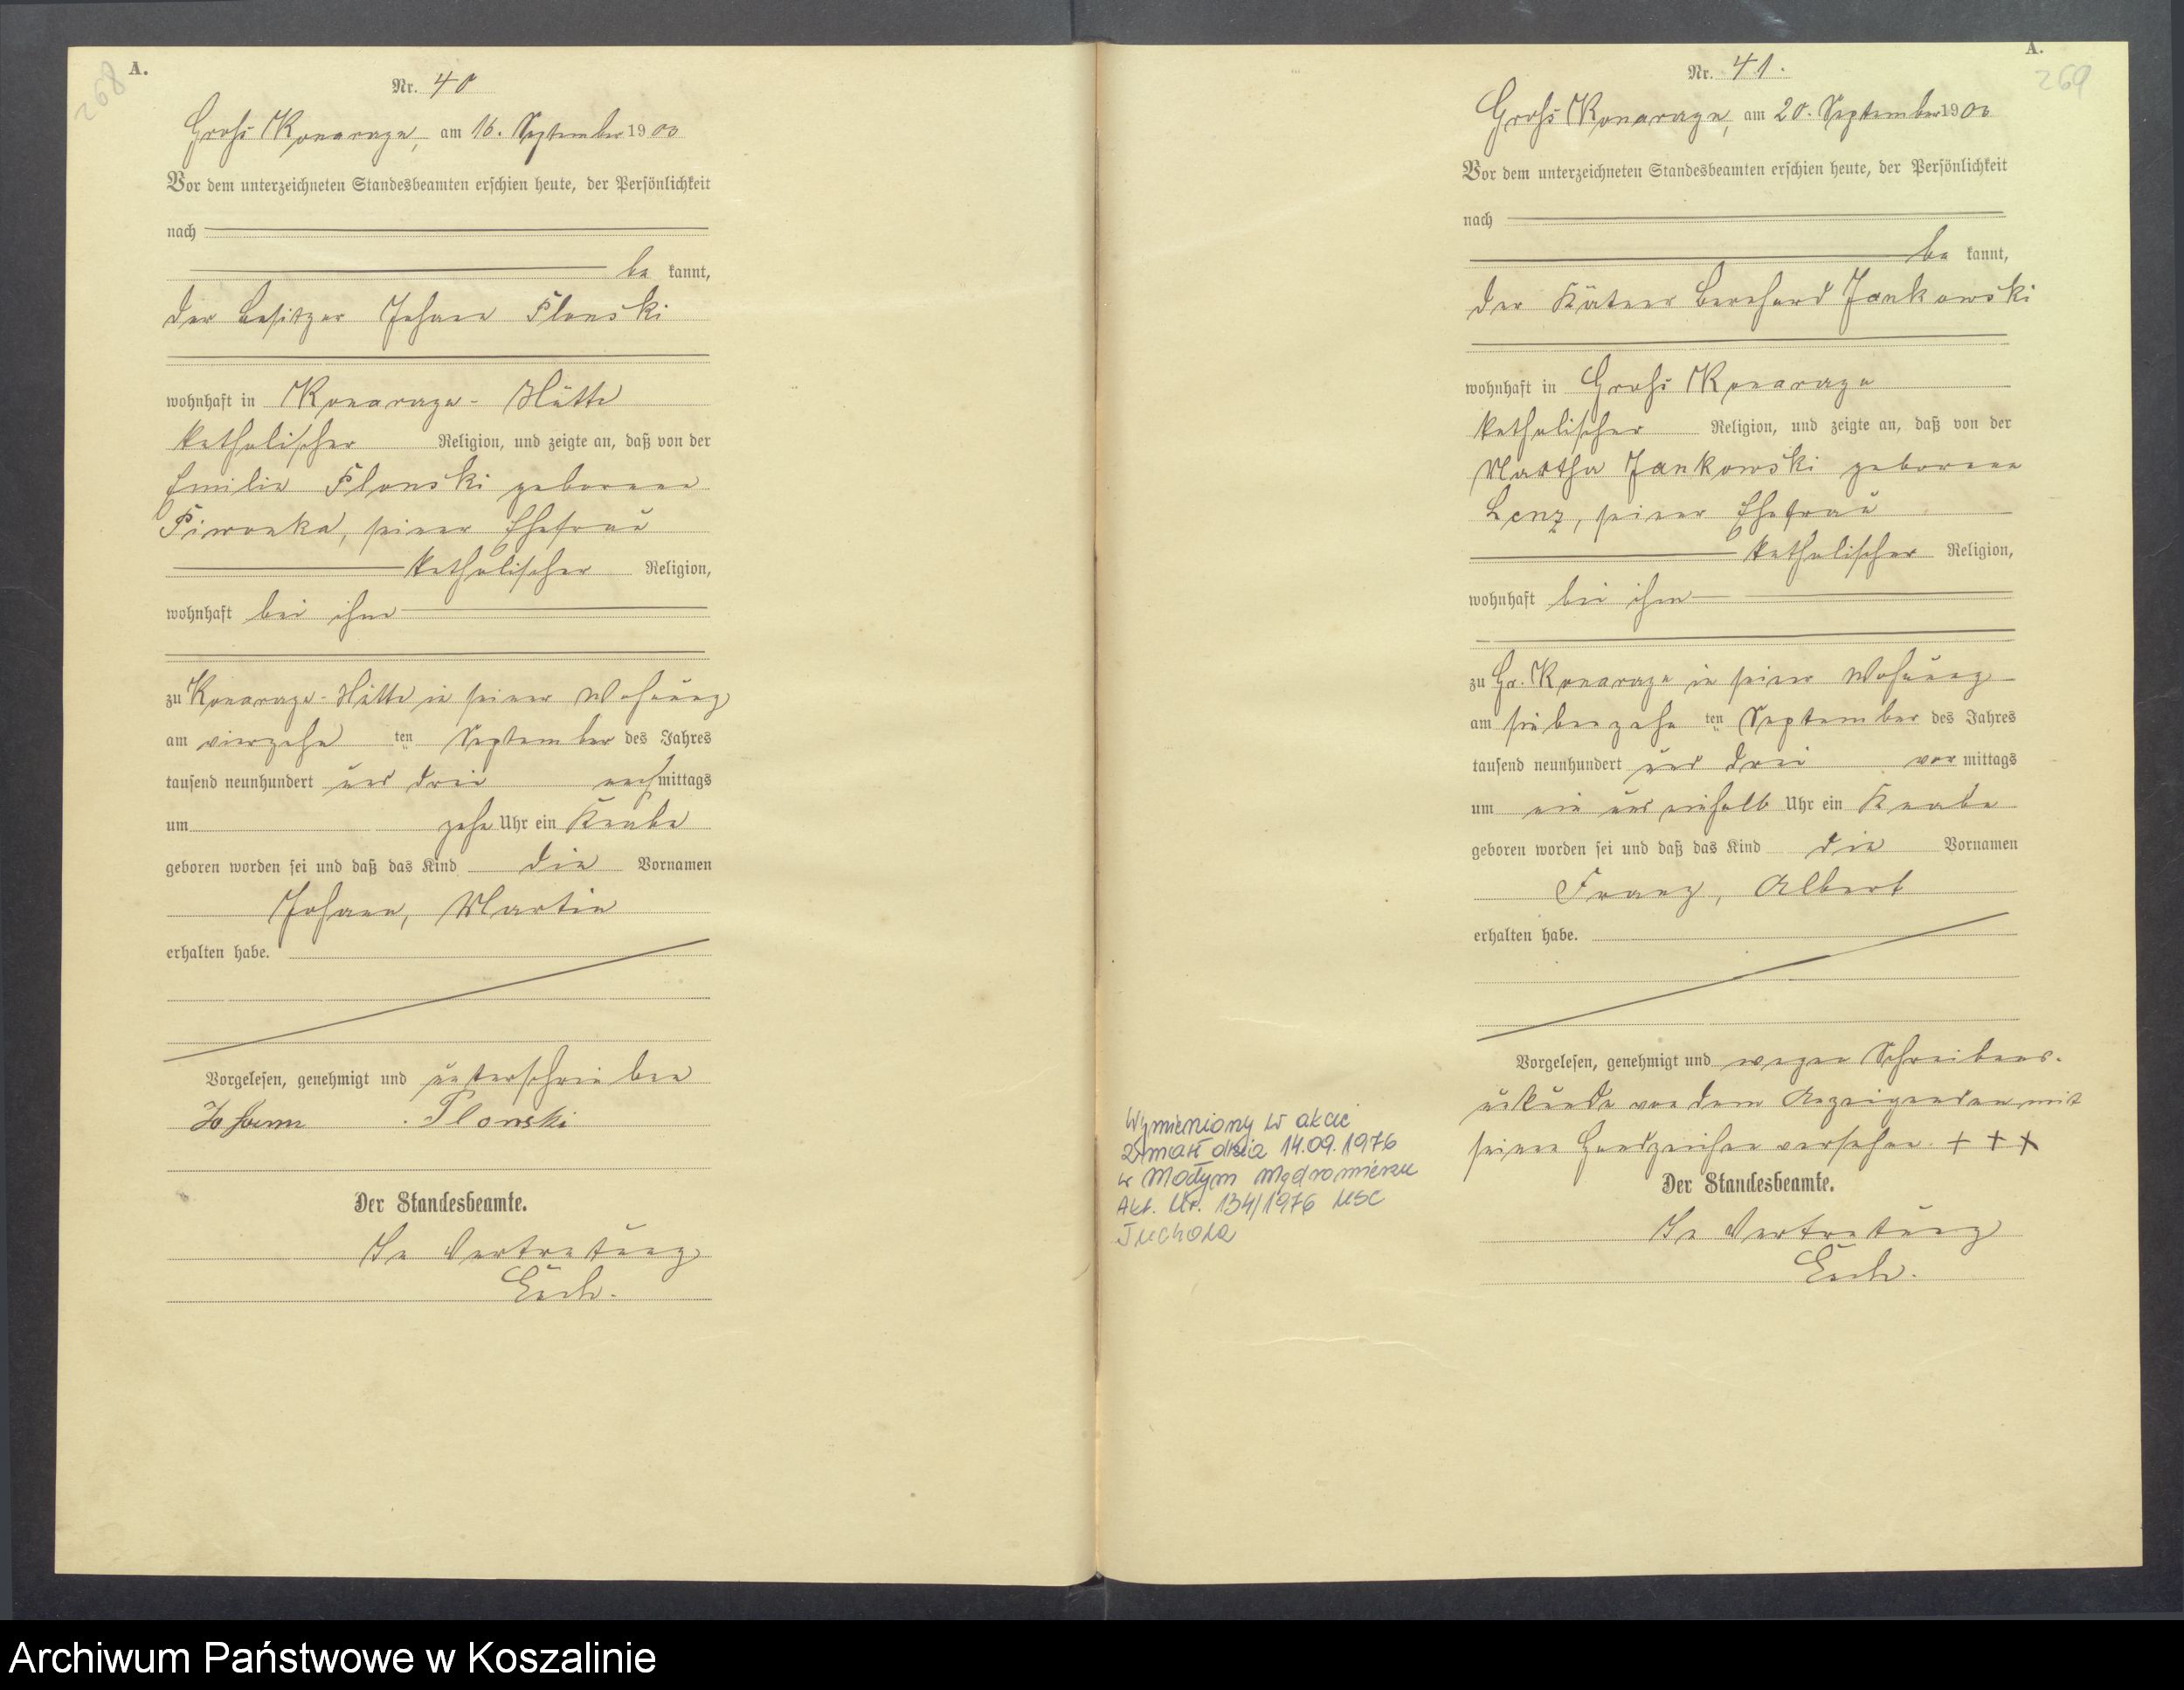 268
A.
Nr. 40
Groß Konarzyn, am 16. September 1903
Vor dem unterzeichneten Standesbeamten erschien heute, der Persönlichkeit
nach
be kannt,
der Besitzer Johann Plonski
wohnhaft in Konarzyn-Hütte
katholischer Religion, und zeigte an, daß von der
Emilie Plonski geborene
Piwonka, seiner Ehefrau
katholischer Religion,
wohnhaft bei ihm
zu Konarzyn-Hütte in seiner Wohnung
am vierzehn ten September des Jahres
tausend neunhundert und drei nachmittags
um zehn Uhr ein Knabe
geboren worden sei und daß das Kind die Vornamen
Johann, Martin
erhalten habe.
Vorgelesen, genehmigt und unterschrieben
Johann Plonski
Der Standesbeamte.
In Vertretung
A.
269
Nr. 41.
Groß Konarzyn, am 20. September 1903
Vor dem unterzeichneten Standesbeamten erschien heute, der Persönlichkeit
nach
be kannt,
der Kätner Bernhard Jankowski
wohnhaft in Groß Konarzyn
katholischer Religion, und zeigte an, daß von der
Martha Jankowski geborene
Lenz, seiner Ehefrau
katholischer Religion,
wohnhaft bei ihm
zu Gr. Konarzyn in seiner Wohnung
am siebenzehn ten September des Jahres
tausend neunhundert und drei vor mittags
um ein und einhalb Uhr ein Knabe
geboren worden sei und daß das Kind die Vornamen
Franz, Albert
erhalten habe.
Vorgelesen, genehmigt und wegen Schreibens-
unkunde von dem Anzeigenden mit
seinen Handzeichen versehen. + + +
Der Standesbeamte.
In Vertretung
Wymieniony w akcie
zmarł dnia 14.09.1976
w Małym Mędromierzu
Akt. Nr. 134/1976 USC
Tuchola
Archiwum Państwowe w Koszalinie